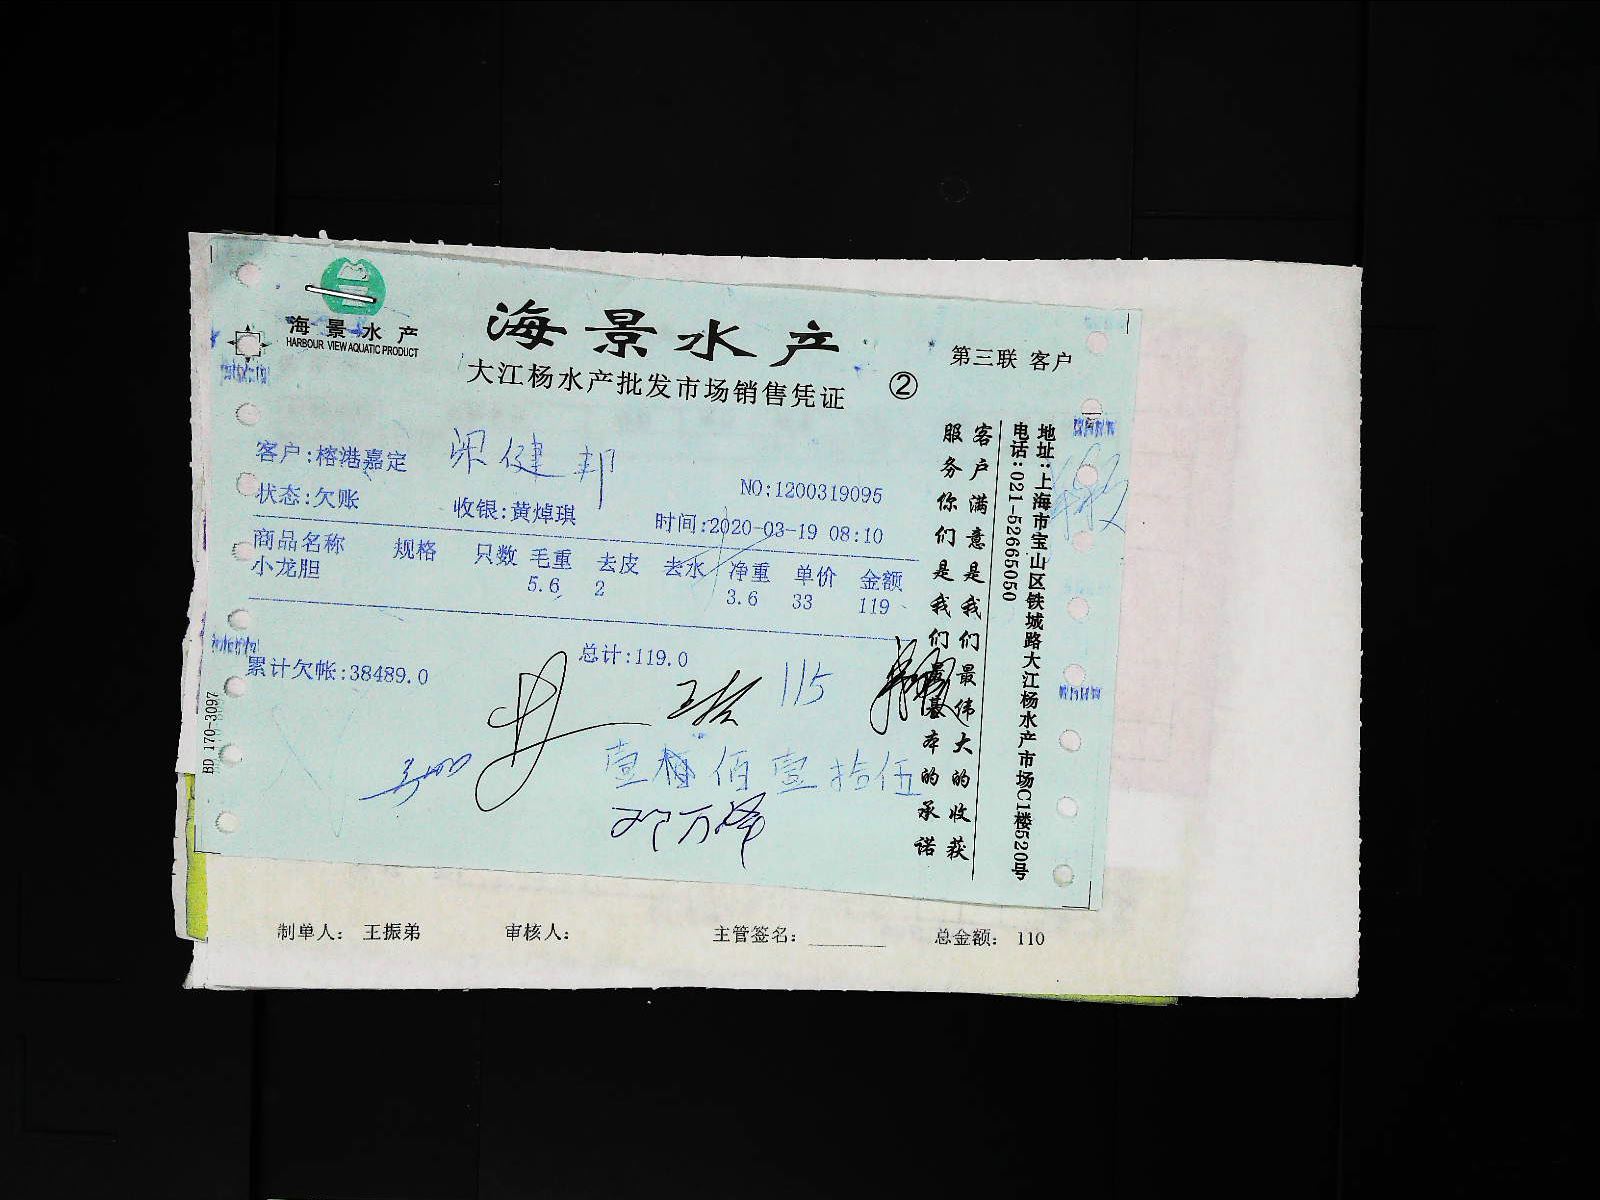 海景水产
HARBOUR VIEW AQUATIC PRODUCT
海景水产
大江杨水产批发市场销售凭证
②
第三联 客户
客户:榕港嘉定
梁健邦
NO:1200319095
状态:欠账 收银:黄焯琪 时间:2020-03-19 08:10
商品名称 规格 只数 毛重 去皮 去水 净重 单价 金额
小龙胆 5.6 2 3.6 33 119
总计:119.0
累计欠帐:38489.0
115
壹佰壹拾伍
邓万
客户满意是我们最伟大的收获
服务你们是我们最基本的承诺
地址:上海市宝山区铁城路大江杨水产市场C1楼520号
电话:021-52665050
BD 170-3097
制单人: 王振弟 审核人: 主管签名: 总金额: 110